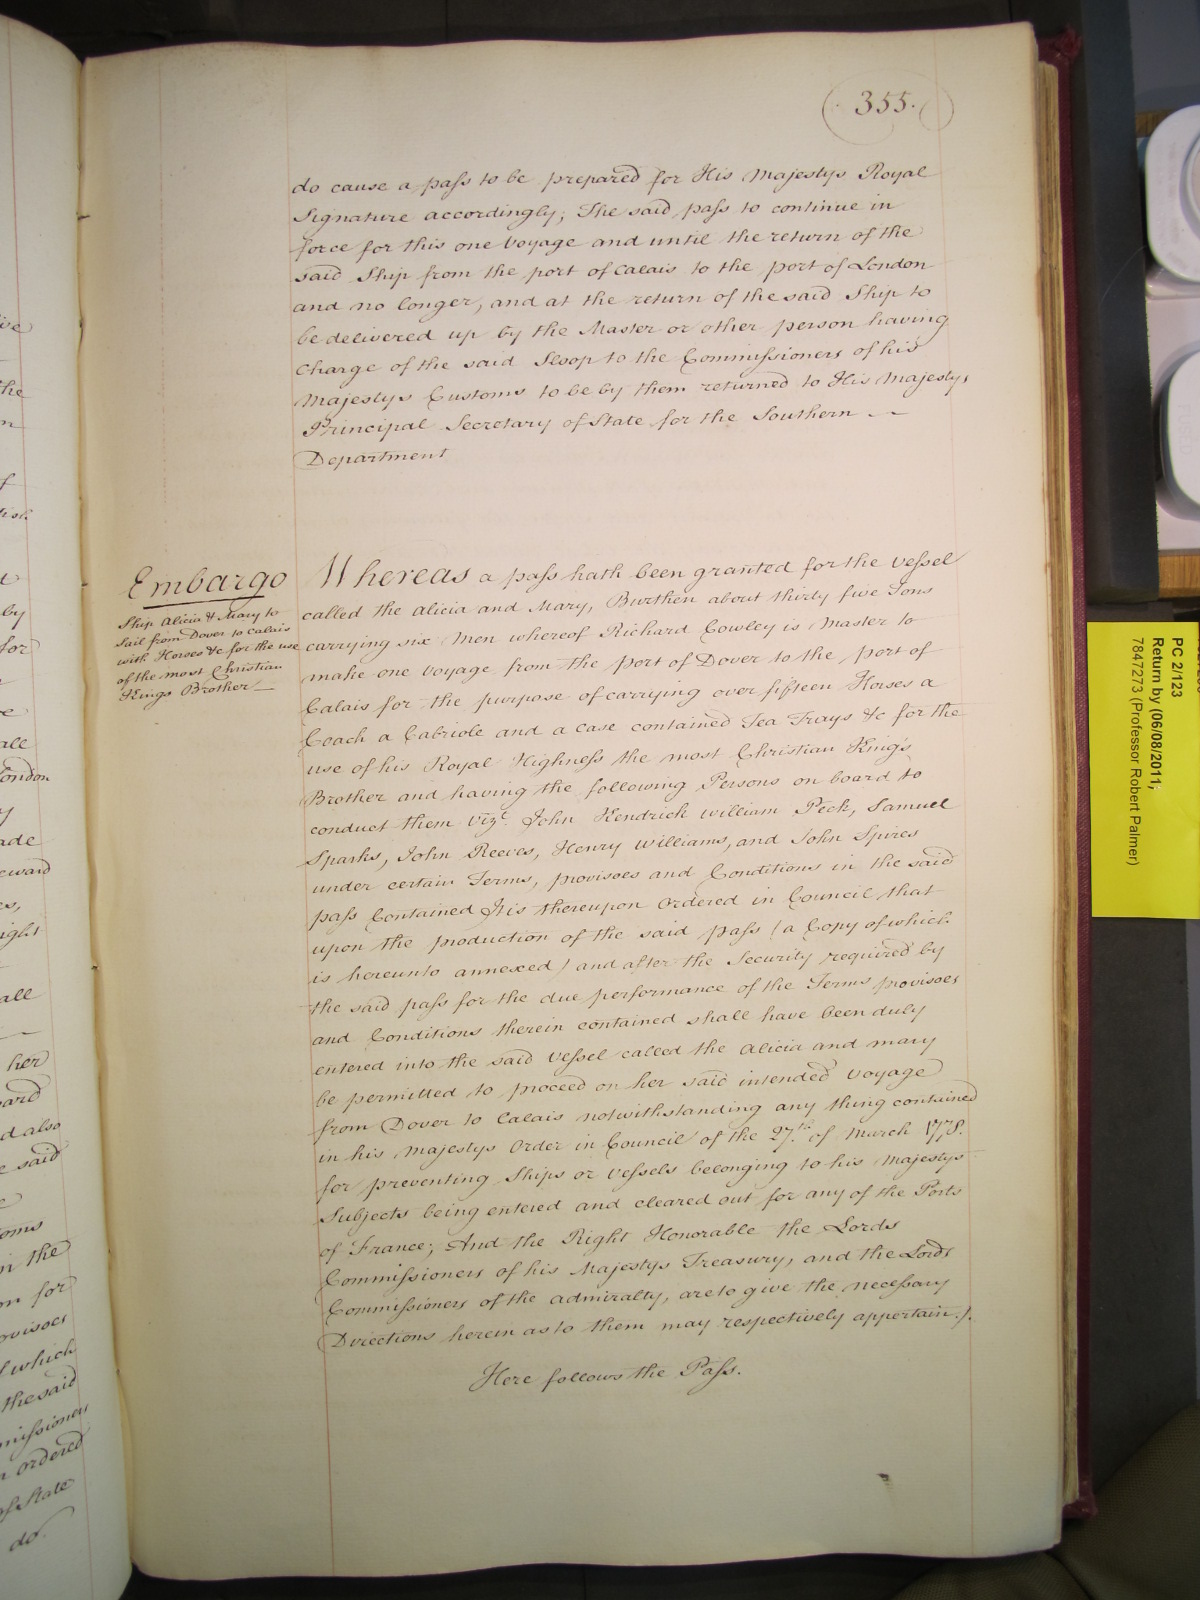 355.
do cause a pass to be prepared for His Majestys Royal
Signature accordingly; The said pass to continue in
force for this one Voyage and until the return of the
said Ship from the port of Calais to the port of London
and no longer, and at the return of the said Ship to
be delivered up by the Master or other person having
Charge of the said Sloop to the Commissioners of his
Majestys Customs to be by them returned to His Majestys
Principal Secretary of State for the Southern
Department
Embargo
Ship Alicia & Mary to
Sail from Dover to Calais
with Horses &c for the use
of the most Christian
Kings Brother
Whereas a pass hath been granted for the Vessel
called the Alicia and Mary, Burthen about thirty five Tons
carrying six Men whereof Richard Cowley is Master to
make one Voyage from the Port of Dover to the port of
Calais for the purpose of carrying over fifteen Horses a
Coach a Cabriole and a case contained Tea Trays &c for the
use of his Royal Highness the most Christian King's
Brother and having the following Persons on board to
conduct them Vizt. John Kendrick William Peck, Samuel
Sparks, John Reeves, Henry Williams, and John Spires
under certain Terms, provisoes and Conditions in the said
pass Contained It is thereupon Ordered in Council that
upon the production of the said pass (a Copy of which
is hereunto annexed) and after the Security required by
the said pass for the due performance of the Terms provisoes
and Conditions therein contained shall have been duly
entered into the said Vessel called the Alicia and Mary
be permitted to proceed on her said intended Voyage
from Dover to Calais notwithstanding any thing contained
in his Majestys Order in Council of the 27th. of March 1778.
for preventing Ships or Vessels belonging to his Majestys
Subjects being entered and cleared out for any of the Ports
of France; And the Right Honorable the Lords
Commissioners of his Majestys Treasury, and the Lords
Commissioners of the Admiralty, are to give the necessary
Directions herein as to them may respectively appertain./.
Here follows the Pass.
PC 2/123
Return by (06/08/2011)
7847273 (Professor Robert Palmer)
the
by
for
all
London
ade
all
her
d also
e said
oms
n the
on for
which
the said
ordered
of State
do